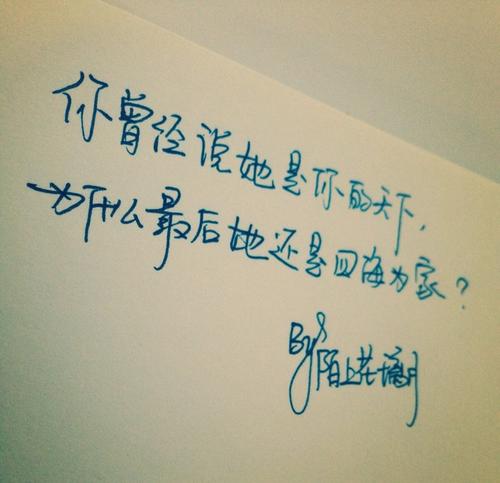 你曾经说她是你的天下,
为什么最后她还是四海为家?
By 陌上花